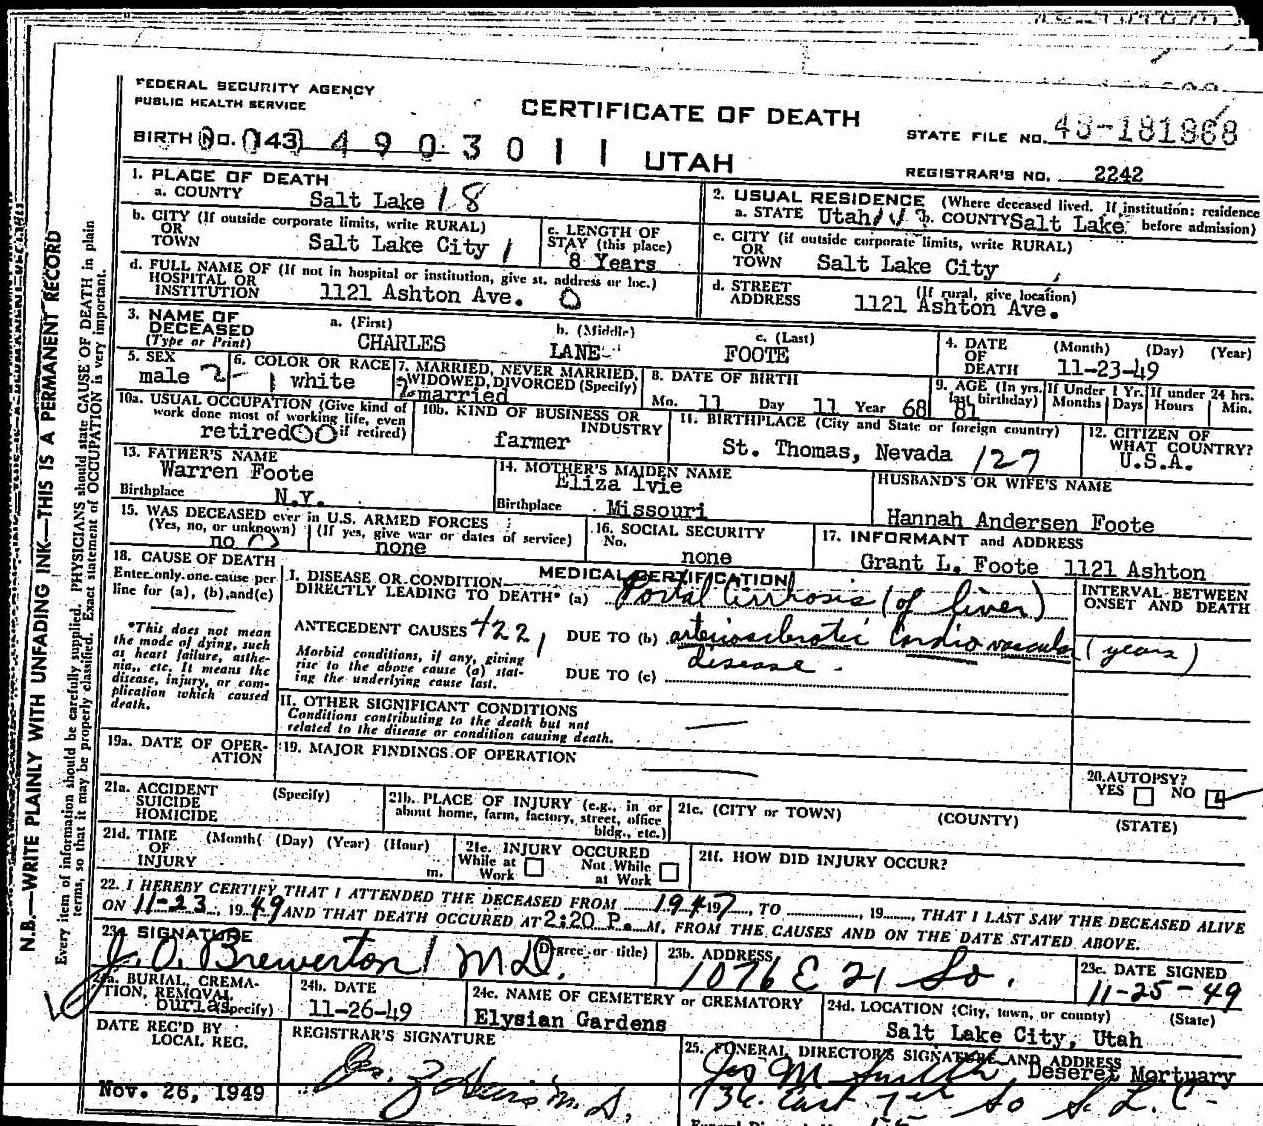 FEDERAL SECURITY AGENCY
PUBLIC HEALTH SERVICE
CERTIFICATE OF DEATH
STATE FILE NO.
BIRTH No. 143 4903011 UTAH
REGISTRAR'S NO. 2242
1. PLACE OF DEATH
a. COUNTY Salt Lake 18
b. CITY (If outside corporate limits, write RURAL)
OR
TOWN Salt Lake City 1
c. LENGTH OF
STAY (this place)
8 Years
d. FULL NAME OF (If not in hospital or institution, give st. address or loc.)
HOSPITAL OR
INSTITUTION 1121 Ashton Ave. O
2. USUAL RESIDENCE (Where deceased lived. If institution: residence
a. STATE Utah b. COUNTY Salt Lake before admission)
c. CITY (if outside corporate limits, write RURAL)
OR
TOWN Salt Lake City
d. STREET (If rural, give location)
ADDRESS 1121 Ashton Ave.
3. NAME OF DECEASED (Type or Print)
a. (First) b. (Middle) c. (Last)
CHARLES LANE FOOTE
4. DATE OF DEATH (Month) (Day) (Year)
11-23-49
5. SEX
male 2
6. COLOR OR RACE
1 white
7. MARRIED, NEVER MARRIED,
WIDOWED, DIVORCED (Specify)
2 married
8. DATE OF BIRTH
Mo. 11 Day 11 Year 68
9. AGE (In yrs. last birthday) 81
If Under 1 Yr. Months Days
If under 24 hrs. Hours Min.
10a. USUAL OCCUPATION (Give kind of
work done most of working life, even
retired 00 if retired)
10b. KIND OF BUSINESS OR
INDUSTRY
farmer
11. BIRTHPLACE (City and State or foreign country)
St. Thomas, Nevada 127
12. CITIZEN OF
WHAT COUNTRY?
U.S.A.
13. FATHER'S NAME
Warren Foote
Birthplace N.Y.
14. MOTHER'S MAIDEN NAME
Eliza Ivie
Birthplace Missouri
HUSBAND'S OR WIFE'S NAME
Hannah Andersen Foote
15. WAS DECEASED ever in U.S. ARMED FORCES
(Yes, no, or unknown) (If yes, give war or dates of service)
no 0 none
16. SOCIAL SECURITY
No.
none
17. INFORMANT and ADDRESS
Grant L. Foote 1121 Ashton
18. CAUSE OF DEATH
Enter only one cause per
line for (a), (b), and (c)
*This does not mean
the mode of dying, such
as heart failure, asthe-
nia, etc. It means the
disease, injury, or com-
plication which caused
death.
MEDICAL CERTIFICATION
I. DISEASE OR CONDITION
DIRECTLY LEADING TO DEATH* (a) Portal Cirrhosis (of liver)
ANTECEDENT CAUSES 4221 DUE TO (b) arteriosclerotic Cardiovascular (years)
disease.
Morbid conditions, if any, giving
rise to the above cause (a) stat-
ing the underlying cause last.
DUE TO (c)
INTERVAL BETWEEN
ONSET AND DEATH
II. OTHER SIGNIFICANT CONDITIONS
Conditions contributing to the death but not
related to the disease or condition causing death.
19a. DATE OF OPER-
ATION
19. MAJOR FINDINGS OF OPERATION
20. AUTOPSY?
YES NO
21a. ACCIDENT
SUICIDE
HOMICIDE
(Specify)
21b. PLACE OF INJURY (e.g., in or
about home, farm, factory, street, office
bldg., etc.)
21c. (CITY or TOWN) (COUNTY) (STATE)
21d. TIME (Month) (Day) (Year) (Hour)
OF
INJURY m.
21e. INJURY OCCURED
While at Work
Not While at Work
21f. HOW DID INJURY OCCUR?
22. I HEREBY CERTIFY THAT I ATTENDED THE DECEASED FROM 1947, TO , 19 , THAT I LAST SAW THE DECEASED ALIVE
ON 11-23, 1949 AND THAT DEATH OCCURED AT 2:20 P. M, FROM THE CAUSES AND ON THE DATE STATED ABOVE.
23a. SIGNATURE (Degree or title)
J. O. Brewerton M.D.
23b. ADDRESS
1076 E 21 So.
23c. DATE SIGNED
11-25-49
24a. BURIAL, CREMA-
TION, REMOVAL
burial (Specify)
24b. DATE
11-26-49
24c. NAME OF CEMETERY or CREMATORY
Elysian Gardens
24d. LOCATION (City, town, or county) (State)
Salt Lake City, Utah
DATE REC'D BY
LOCAL REG.
Nov. 26, 1949
REGISTRAR'S SIGNATURE
M.D.
25. FUNERAL DIRECTOR'S SIGNATURE AND ADDRESS
Jos M Smith Deseret Mortuary
36 East 7th So S. L. C.
N.B.—WRITE PLAINLY WITH UNFADING INK—THIS IS A PERMANENT RECORD
Every item of information should be carefully supplied. PHYSICIANS should state CAUSE OF DEATH in plain
terms, so that it may be properly classified. Exact statement of OCCUPATION is very important.